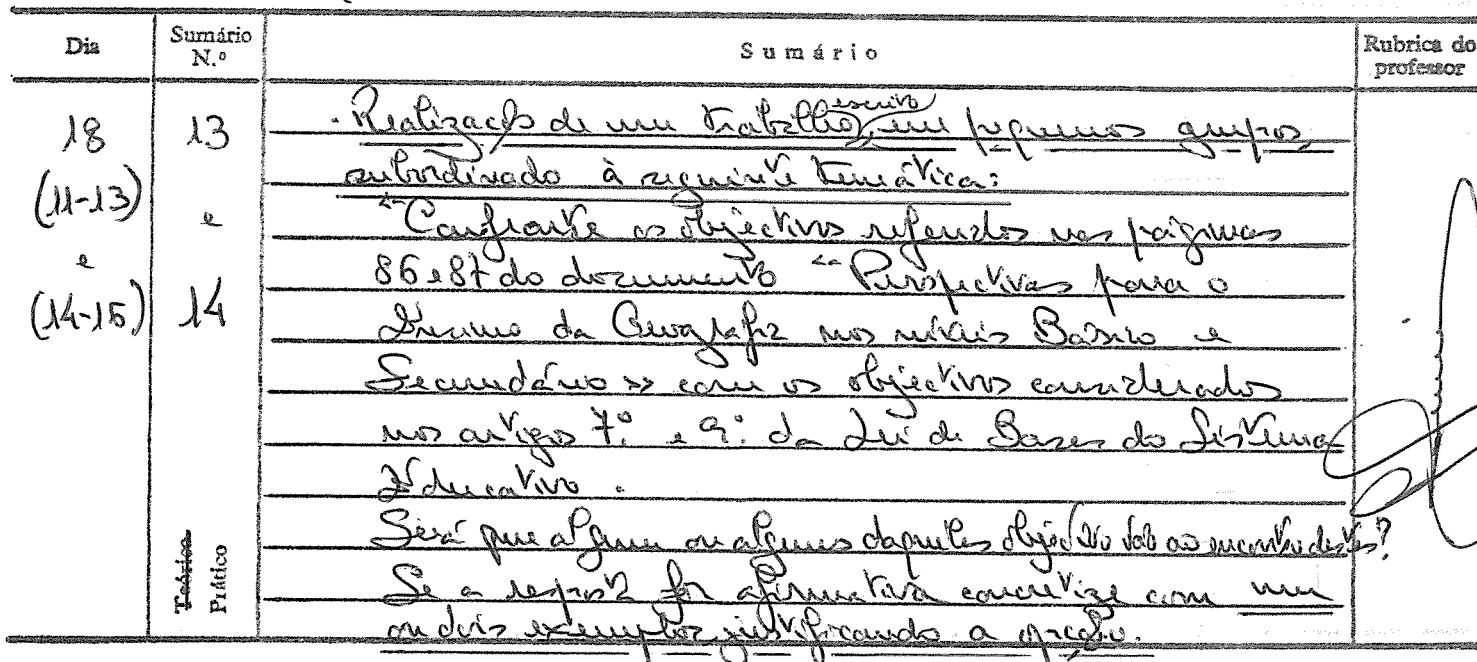 Dia
Sumário N.º
Sumário
Rubrica do professor
18
(11-13)
e
(14-15)
13
e
14
Teórico
Prático
- Realização de um trabalho escrito, em pequenos grupos
subordinado à seguinte temática:
"Confronte os objectivos referidos nas páginas
86 e 87 do documento "Perspectivas para o
Ensino da Geografia nos níveis Básico e
Secundário» com os objectivos considerados
nos artigos 7.º e 9.º da Lei de Bases do Sistema
Educativo.
Será que algum ou alguns daqueles objectivos vão ao encontro destes?
Se a resposta for afirmativa concretize com um
ou dois exemplos justificando a opção.